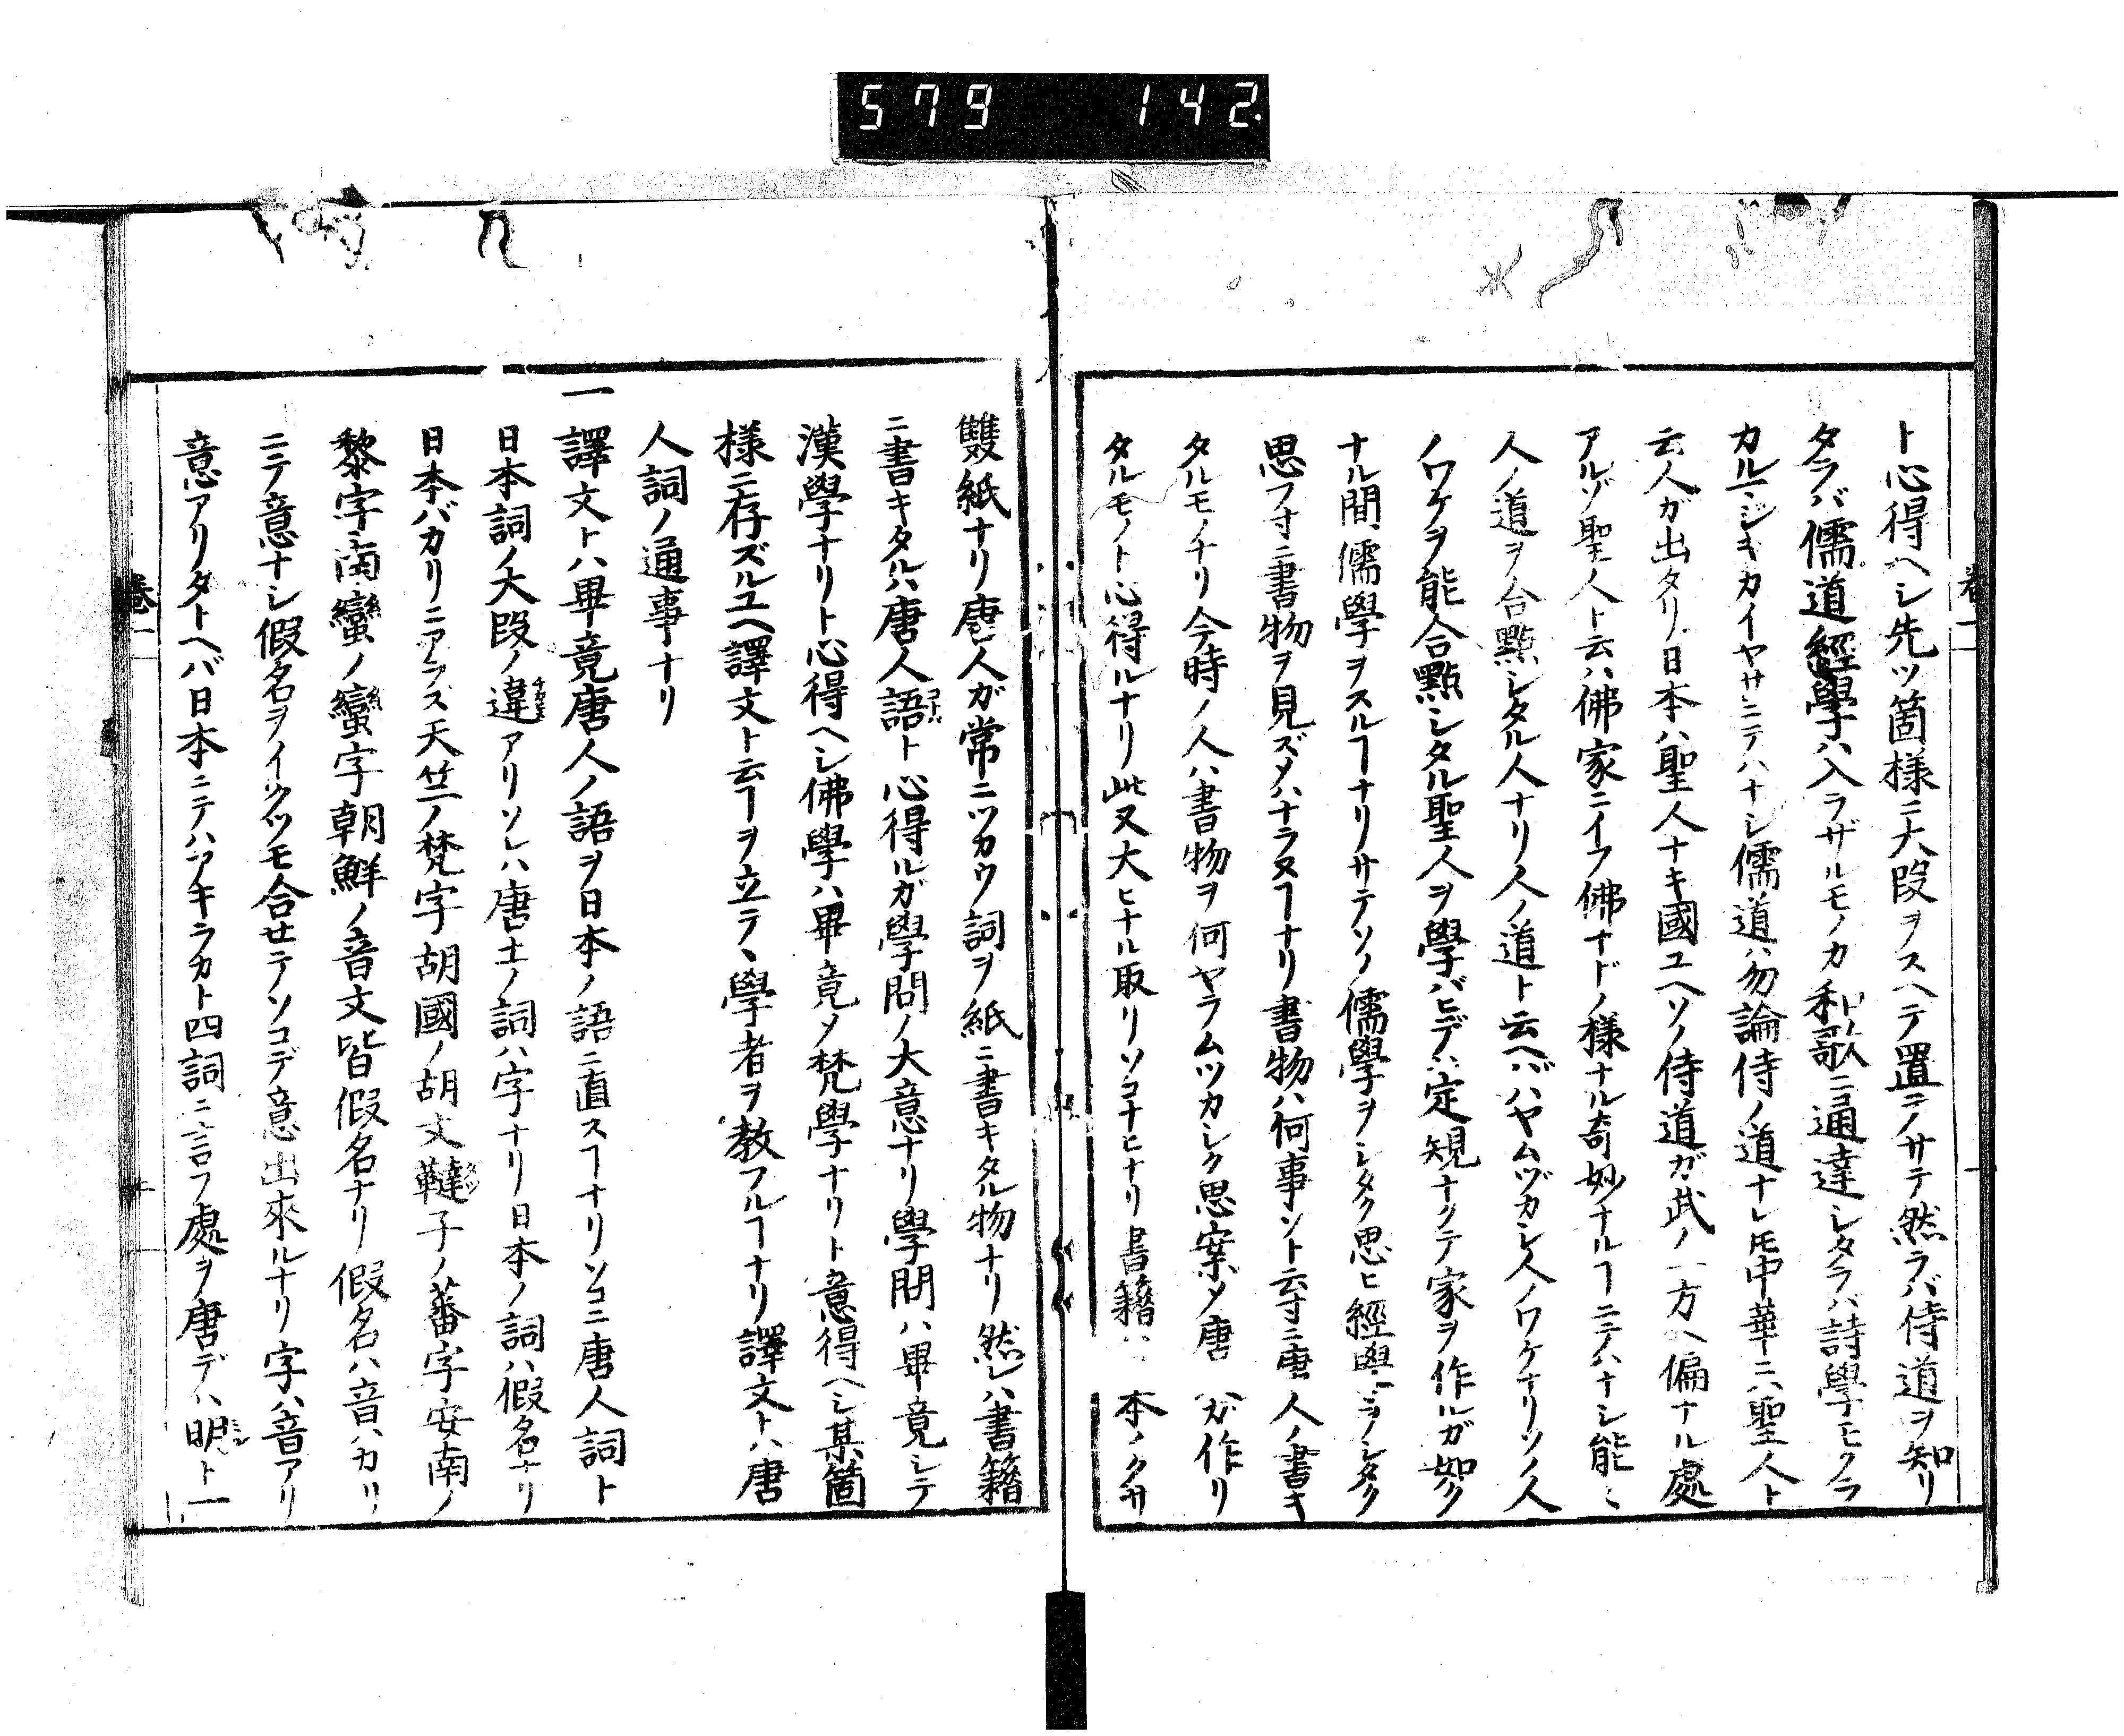 579 142.
卷一
ト心得ヘシ先ツ箇様ニ大段ヲスヘテ置ニノサテ然ラバ侍道ヲ知リ
タラバ儒道經學ハ入ラザルモノカ和歌ニ通達シタラハ詩學モヒクラ
カルヘシキカイヤサニテハナシ儒道ハ勿論侍ノ道ナレ𪜈中華ニハ聖人ト
云人ガ出タリ日本ハ聖人ナキ國ユヘソノ侍道ガ武ノ一方ヘ偏ナル處
アルゾ聖人ト云ハ佛家ニイフ佛ナドノ様ナル奇妙ナルヿニテハナシ能〻
人ノ道ヲ合點シタル人ナリ人ノ道ト云ヘバハヤムヅカシ人ノワケナリソノ人
ノワケヲ能合點シタル聖人ヲ學バヒデハ定規ナクテ家ヲ作ルガ如ク
ナル間儒學ヲスルヿナリサテソノ儒學ヲシタク思ヒ經學ヲシタク
思フ寸ニ書物ヲ見ズメハナラヌヿナリ書物ハ何事ソト云寸ニ唐人ノ書キ
タルモノナリ今時ノ人ハ書物ヲ何ヤラムツカシク思案メ唐 カ作リ
タルモノト心得ルナリ此又大ヒナル取リソコナヒナリ書籍ハ 本ノクサ
雙紙ナリ唐人ガ常ニツカウ詞ヲ紙ニ書キタル物ナリ然レハ書籍
ニ書キタルハ唐人語コトバト心得ルガ學問ノ大意ナリ學問ハ畢竟シテ
漢學ナリト心得ヘシ佛學ハ畢竟メ梵學ナリト意得ヘシ某箇
様ニ存ズルユヘ譯文ト云ヿヲ立テ、學者ヲ教フルヿナリ譯文トハ唐
人詞ノ通事ナリ
一譯文トハ畢竟唐人ノ語ヲ日本ノ語ニ直スヿナリソコニ唐人詞ト
日本詞ノ大段ノ違チガヒアリソレハ唐土ノ詞ハ字ナリ日本ノ詞ハ假名ナリ
日本バカリニアラズ天竺ノ梵字胡國ノ胡文韃子ノ蕃字安南ノ
黎字南蠻ノ蠻字朝鮮ノ音文皆假名ナリ假名ハ音ハカリ
ニテ意ナシ假名ヲイクツモ合セテソコデ意出來ルナリ字ハ音アリ
意アリタトヘバ日本ニテハアキラカト四詞ニ言フ處ヲ唐デハ明ミントー
卷一